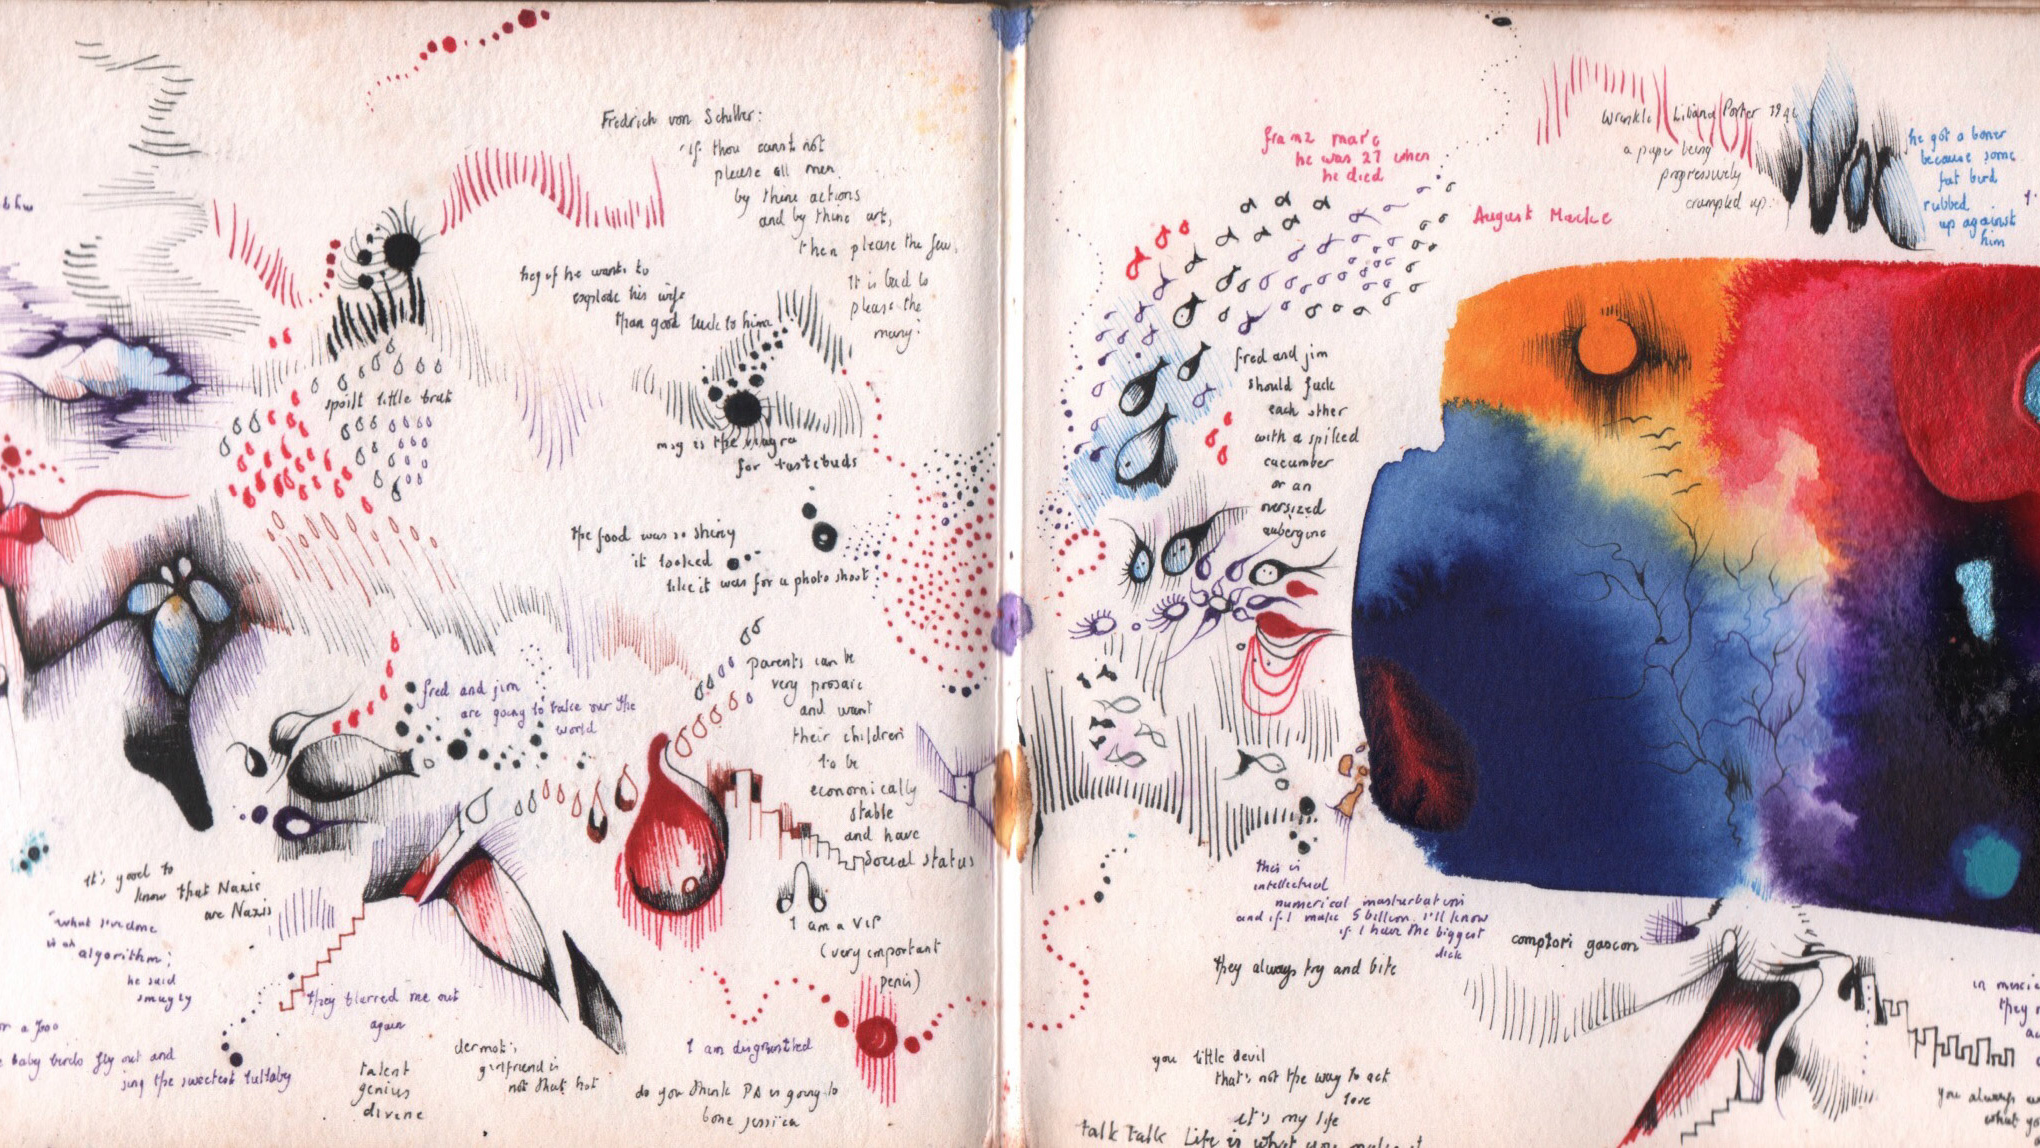 Fredrich von Schiller:
"if thou canst not
please all men
by thine actions
and by thine art,
then please the few.
It is bad to
please the
many."
he wants to
explode his wife
than good luck to him
spoilt little brat
msg is the viagra
for tastebuds
the food was so shiny
it looked
like it was for a photo shoot
fred and jim
are going to take over the
world
parents can be
very prosaic
and want
their children
to be
economically
stable
and have
social status
I am a VIP
(very important
penis)
it's good to
know that Nazis
are Nazis
"what
is an
algorithm;
he said
smugly
baby birds fly out and
sing the sweetest lullaby
they blurred me out
again
talent
genius
divine
dermot's
girlfriend is
not that hot
I am disgruntled
do you think PA is going to
bone jessica
franz marc
he was 27 when
he died
August Macke
Wrinkle Liliana Porter
a paper being
progressively
crumpled up.
he got a boner
because some
fat bird
rubbed
up against
him
fred and jim
should fuck
each other
with a spiked
cucumber
or an
oversized
aubergine
this is
intellectual
numerical masturbation
and if I make 5 billion I'll know
if I have the biggest
dick
they always try and bite
comptori gascon
you little devil
that's not the way to act
love
it's my life
talk talk Life is what you make it
in music
they
you always
what